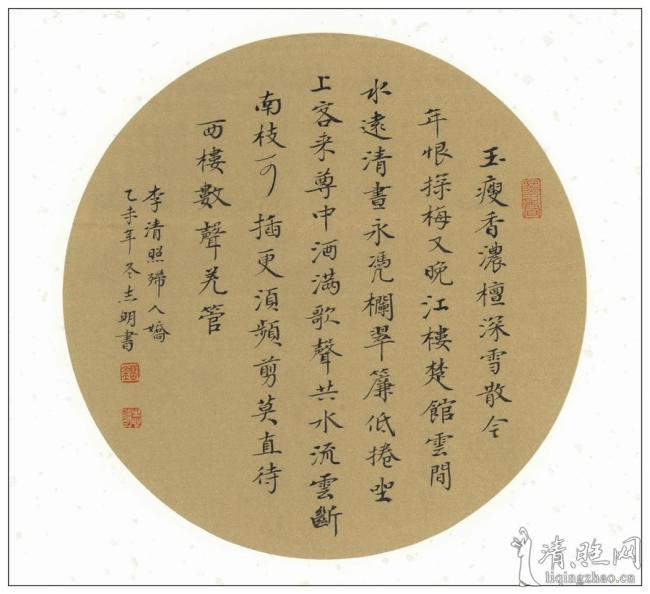 玉瘦香濃檀深雪散今
年恨探梅又晚江樓楚館雲間
水遠清晝永凴欄翠簾低捲坐
上客来尊中酒满歌聲共水流雲斷
南枝可插更須頻剪莫直待
西樓數聲羌管
李清照殢人嬌
乙未年冬志明書
清照网
liqingzhao.cn